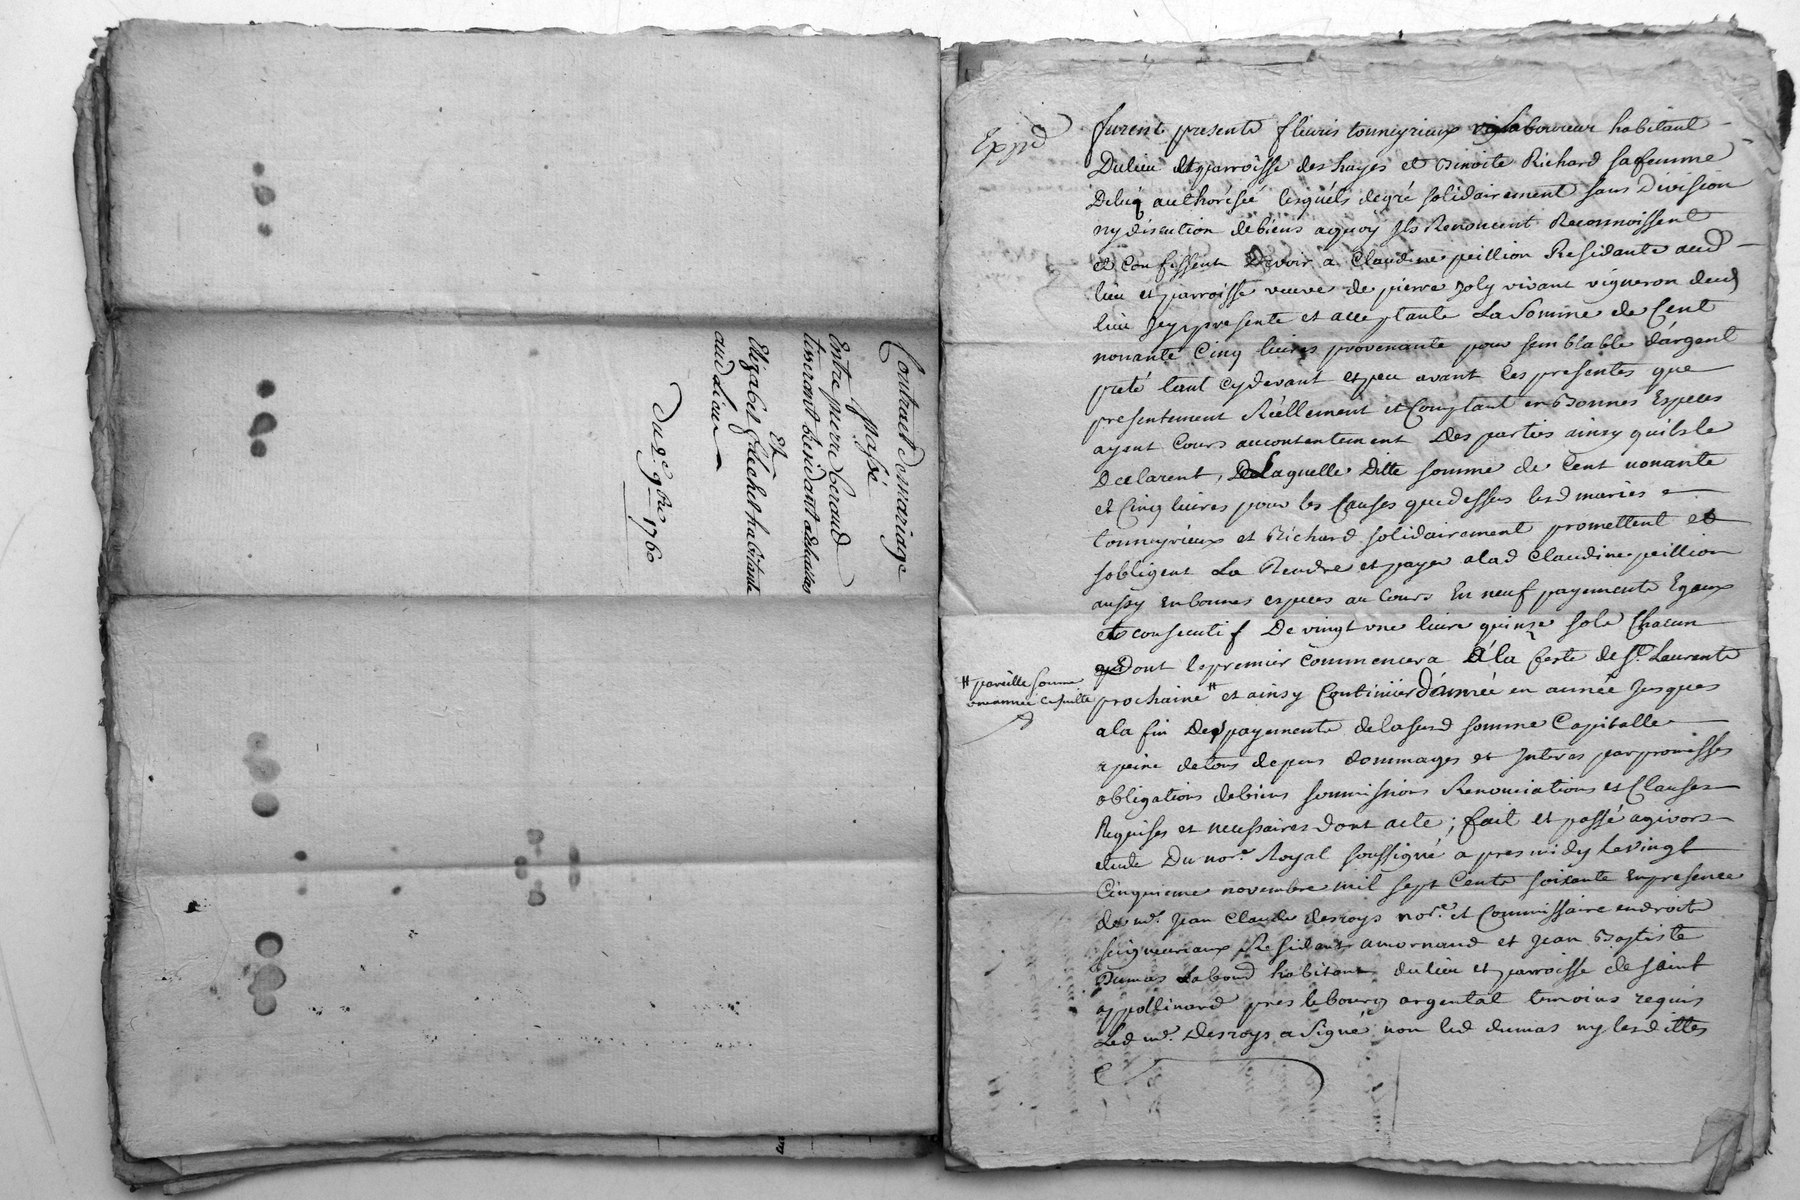 Contract de mariage
passé
Entre pierre beraud
tisserant
Et
Elizabet habitante
aud lieu
Du 2e 9bre 1760
Exp.d
furent presents fleuris tonneyrieux laboureur habitant
Du lieu et parroisse des hayes et Benoite Richard sa femme
De luy authorisée lesquels de gré solidairement sans Division
ny discution de biens a quoy Ils Renoncent Reconnoissent
et Confessent Devoir a Claudine peillion Residante aud
lieu et parroisse veuve de pierre Joly vivant vigneron dud
lieu Icy presente et acceptante La Somme de Cent
nonante Cinq livres provenante pour semblable d'argent
preté tant cydevant et peu avant les presentes que
presentement Réellement et Comptant en Bonnes Especes
ayent Cours au contentement Des parties ainsy quils le
Declarent, De Laquelle Ditte somme de Cent nonante
et Cinq livres pour les Causes que dessus lesd maries
tonneyrieux et Richard solidairement promettent et
sobligent La Rendre et payer a lad Claudine peillion
aussy en bonnes especes au Cours En neuf payements Egaux
et consecutif De vingt une livre quinze sols Chacun
Dont le premier commencera A la feste de St. Laurent
prochaine # et ainsy Continüer D'année en année Jusques
# pareille somme
une année
a la fin Des payements de la susd somme Capitalle
a peine de tous depens dommages et Interes par promesses
obligations de biens soumissions Renonciations et Clauses
Requises et necessaires dont acte; fait et passé a givors
etude Du nore. Royal soussigné a pres midy Le vingt
Cinquieme novembre mil sept Cents soixante En presence
de me. Jean Claude desroys nore. et Commissaire en droits
seigneuriaux Residant a mornand et Jean Baptiste
Dumas Labourd habitant du lieu et parroisse de saint
appollinard pres le bourg argental temoins requis
Led me. Desroys a signé non led dumas ny lesdittes